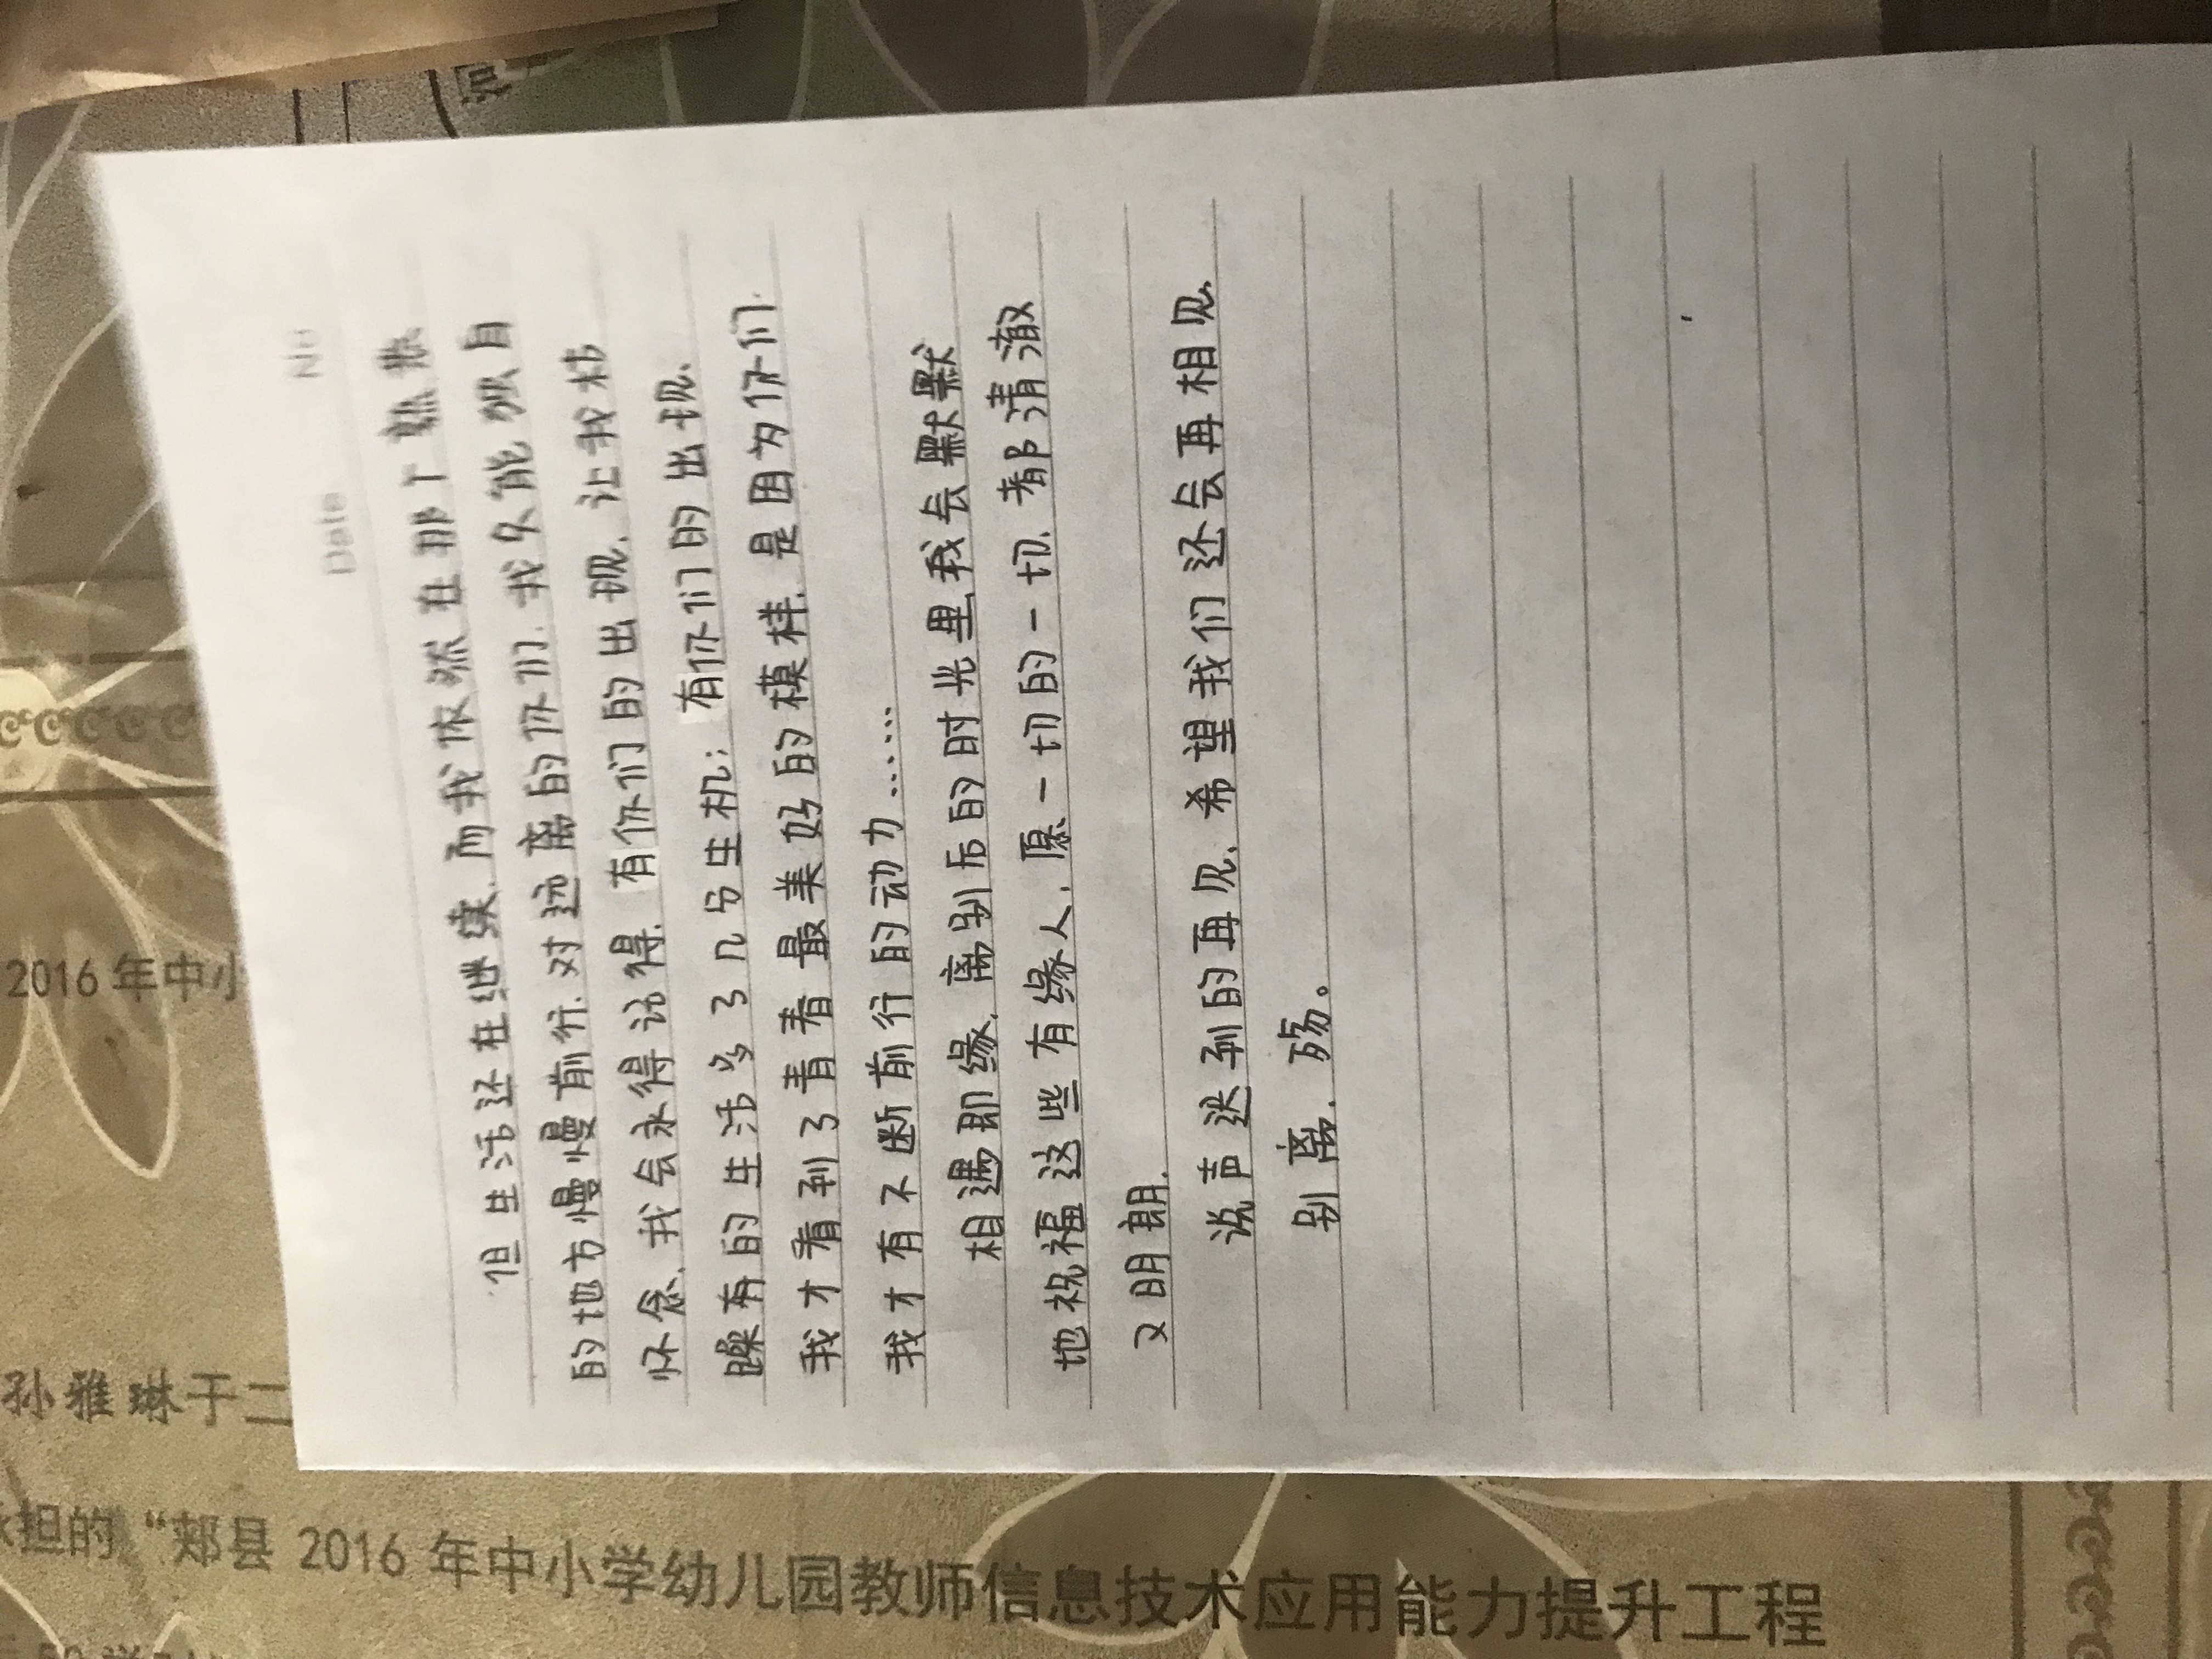 Date
No
但生活还在继续.而我依然在那个熟悉
的地方慢慢前行.对远离的你们.我只能独自
怀念.我会永得记得.有你们的出现.让我枯
躁有的生活多了几分生机;有你们的出现.
我才看到了青春最美好的模样.是因为你们.
我才有不断前行的动力……
相遇即缘.离别后的时光里我会默默
地祝福这些有缘人.愿一切的一切.都清澈
又明朗.
说声迟到的再见.希望我们还会再相见.
别离.殇。
2016年中小
孙雅琳于二
担的“郏县2016年中小学幼儿园教师信息技术应用能力提升工程